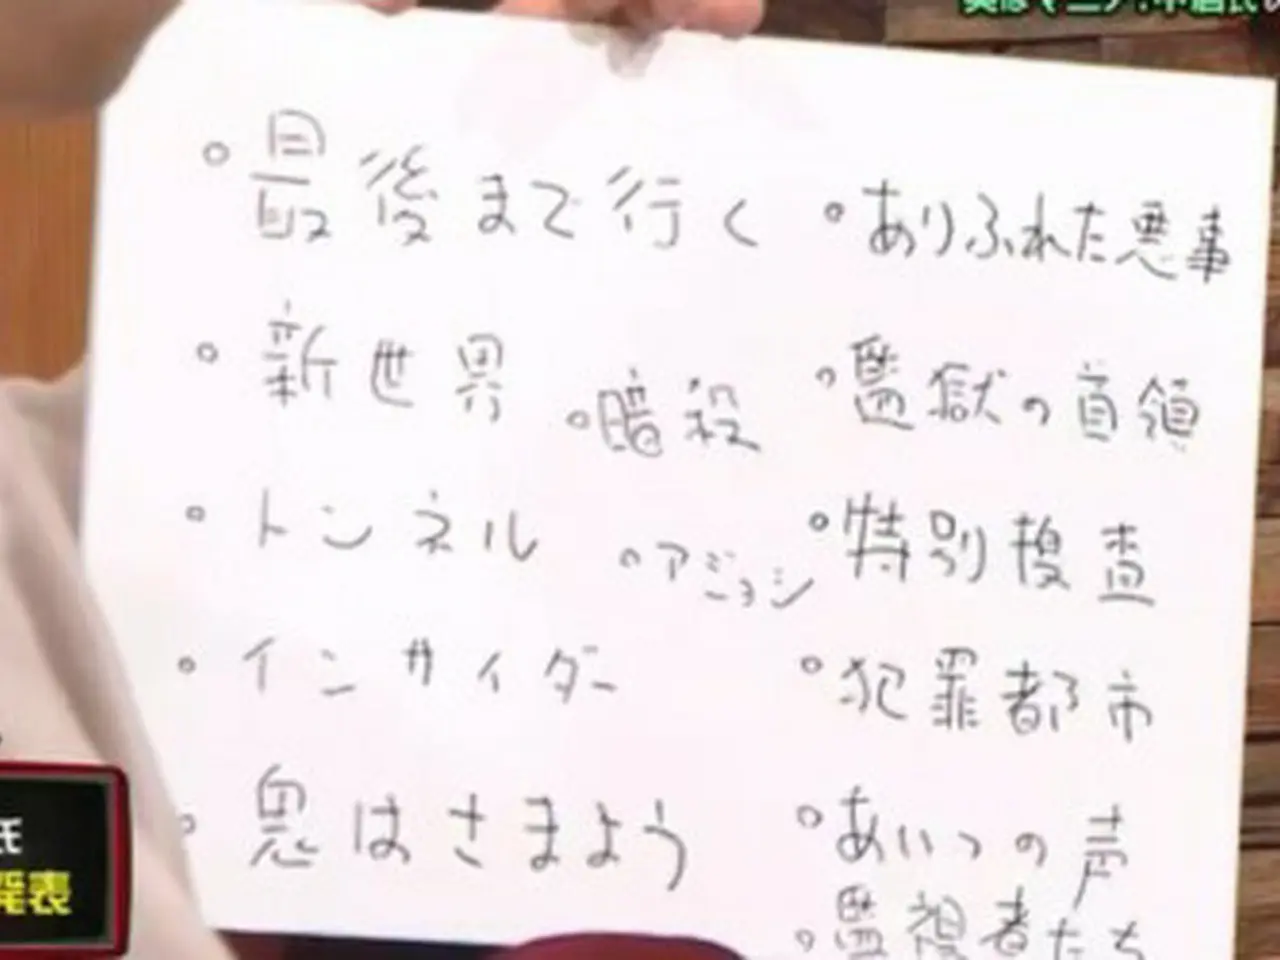 最後まで行く
新世界
トンネル
インサイダー
鬼はさまよう
暗殺
アジョシ
ありふれた悪事
監獄の首領
特別捜査
犯罪都市
あいつの声
監視者たち
氏
発表